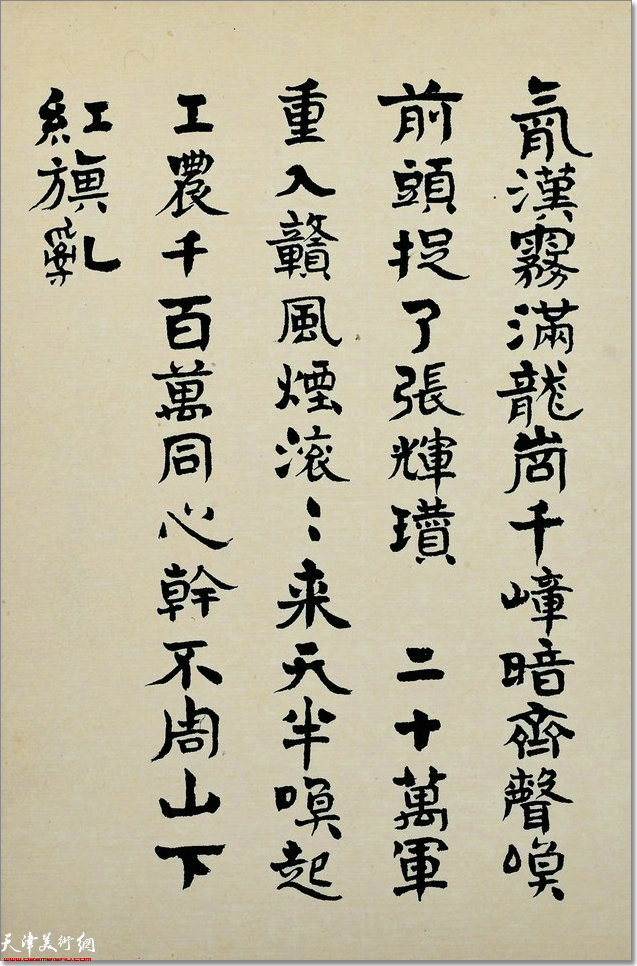 氣漢霧滿龍崗千嶂暗齊聲喚
前頭捉了張輝瓚　二十萬軍
重入贛風煙滾〻来天半喚起
工農千百萬同心幹不周山下
紅旗亂
天津美術網